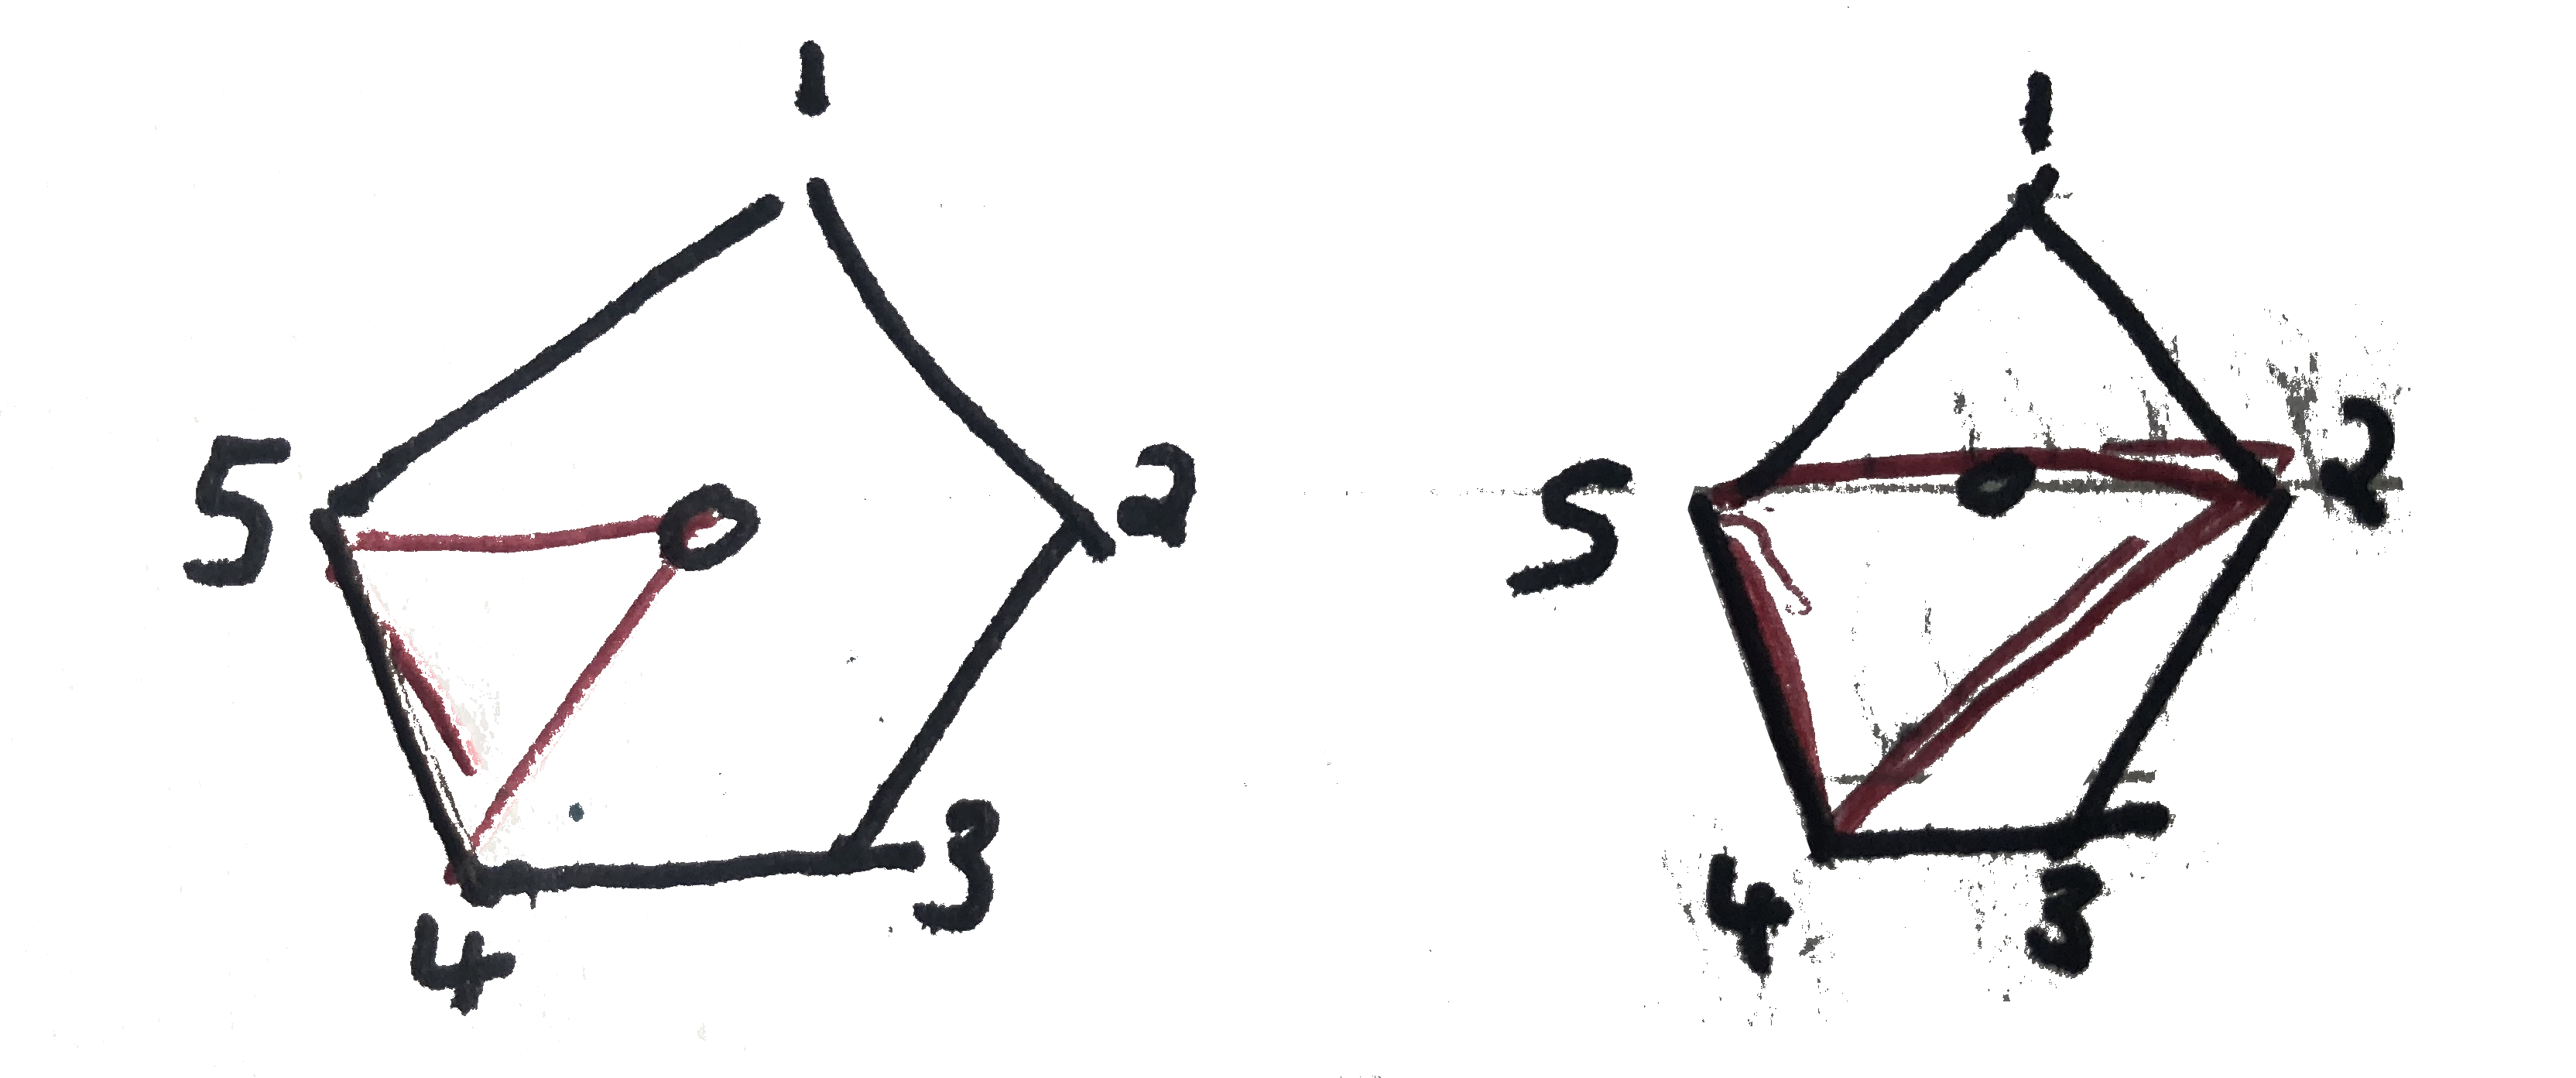 1
5 2
4 3
1
5 2
4 3